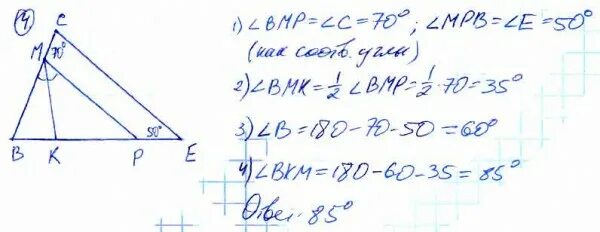 4
C
M 70°
50°
B K P E
1) ∠BMP=∠C=70°; ∠MPB=∠E=50°
(как соотв. углы)
2) ∠BMK=1/2 ∠BMP=1/2·70=35°
3) ∠B=180-70-50=60°
4) ∠BKM=180-60-35=85°
Ответ 85°